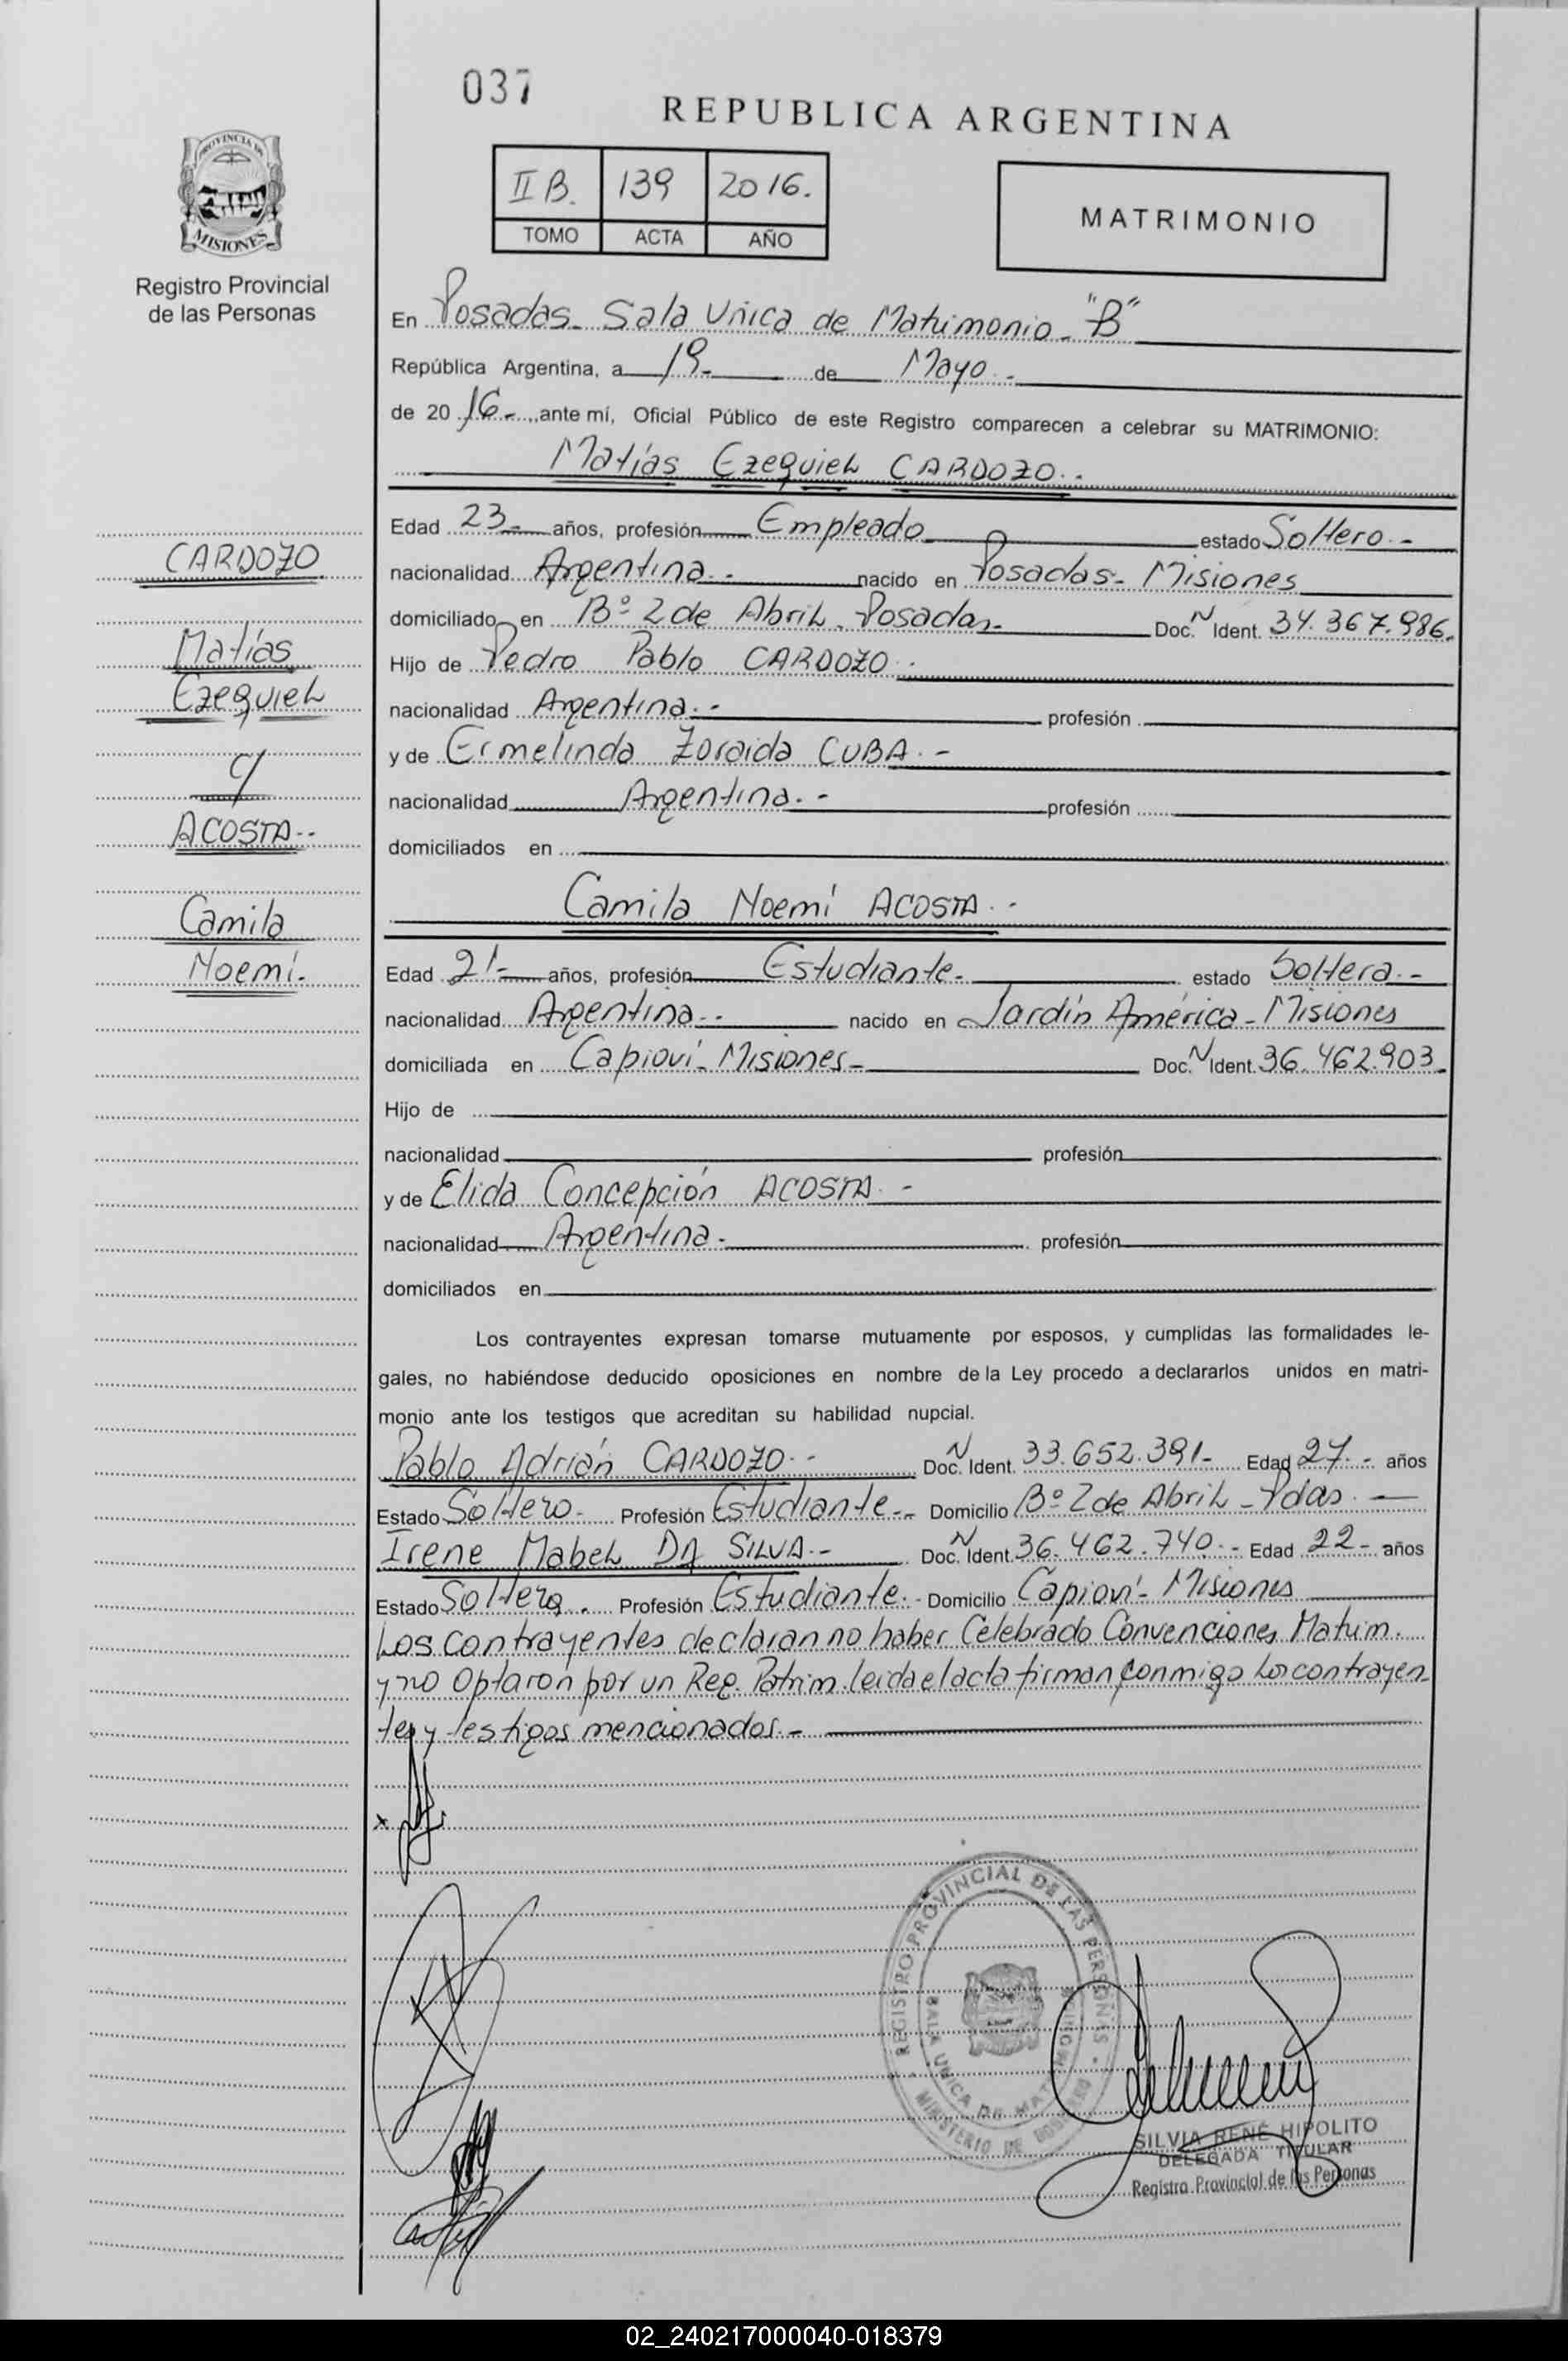 037
REPUBLICA ARGENTINA
II B. 139 2016.
TOMO ACTA AÑO
MATRIMONIO
PROVINCIA DE
MISIONES
Registro Provincial
de las Personas
En Posadas - Sala Única de Matrimonio - "B"
República Argentina, a 19 - de Mayo. -
de 20 16 -, ante mí, Oficial Público de este Registro comparecen a celebrar su MATRIMONIO:
Matías Ezequiel CARDOZO. -
Edad 23 - años, profesión Empleado estado Soltero. -
nacionalidad Argentina. - nacido en Posadas - Misiones
domiciliado en Bº 2 de Abril - Posadas - Doc. N Ident. 34.367.986.
Hijo de Pedro Pablo CARDOZO. -
nacionalidad Argentina. - profesión
y de Ermelinda Zoraida CUBA. -
nacionalidad Argentina. - profesión
domiciliados en
Camila Noemí ACOSTA. -
Edad 21 - años, profesión Estudiante. estado Soltera. -
nacionalidad Argentina. - nacido en Jardín América - Misiones
domiciliada en Capioví - Misiones - Doc. N Ident. 36.462.903.
Hijo de
nacionalidad profesión
y de Elida Concepción ACOSTA. -
nacionalidad Argentina. profesión
domiciliados en
CARDOZO
Matías
Ezequiel
c/
ACOSTA. -
Camila
Noemí.
Los contrayentes expresan tomarse mutuamente por esposos, y cumplidas las formalidades le-
gales, no habiéndose deducido oposiciones en nombre de la Ley procedo a declararlos unidos en matri-
monio ante los testigos que acreditan su habilidad nupcial.
Pablo Adrián CARDOZO. - Doc. N Ident. 33.652.391 - Edad 27. - años
Estado Soltero - Profesión Estudiante. - Domicilio Bº 2 de Abril - Pdas. -
Irene Mabel DA SILVA. - Doc. N Ident. 36.462.740. - Edad 22 - años
Estado Soltera. Profesión Estudiante. - Domicilio Capioví - Misiones
Los contrayentes declaran no haber Celebrado Convenciones Matrim.
y no Optaron por un Reg. Patrim. leida el acta firman conmigo los contrayen-
tes y testigos mencionados. -
REGISTRO PROVINCIAL DE LAS PERSONAS
SALA UNICA DE MATRIMONIO
MINISTERIO DE GOBIERNO
SILVIA RENÉ HIPOLITO
DELEGADA TITULAR
Registro Provincial de las Personas
02_240217000040-018379